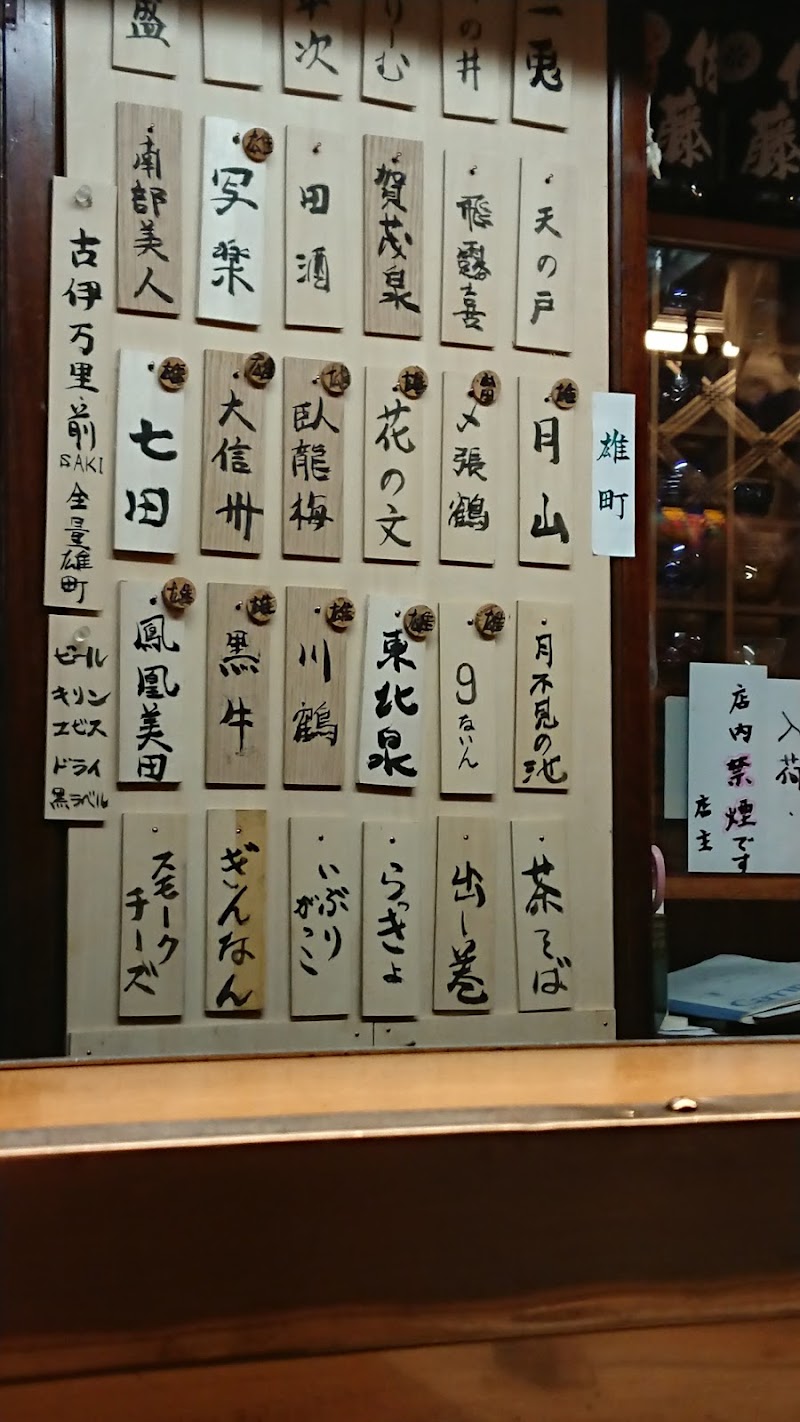 一兎
の井
りーむ
次
盛
天の戸
飛露喜
賀茂泉
田酒
写楽
雄
南部美人
月山
雄
〆張鶴
雄
花の文
雄
臥龍梅
雄
大信州
雄
七田
雄
月不見の池
9ないん
雄
東北泉
雄
川鶴
雄
黒牛
雄
鳳凰美田
雄
茶そば
出し巻
らっきょ
いぶり
がっこ
ぎんなん
スモーク
チーズ
古伊万里・前
SAKI
全量雄町
ビール
キリン
ヱビス
ドライ
黒ラベル
雄町
入荷
店内禁煙です
店主
藤
藤